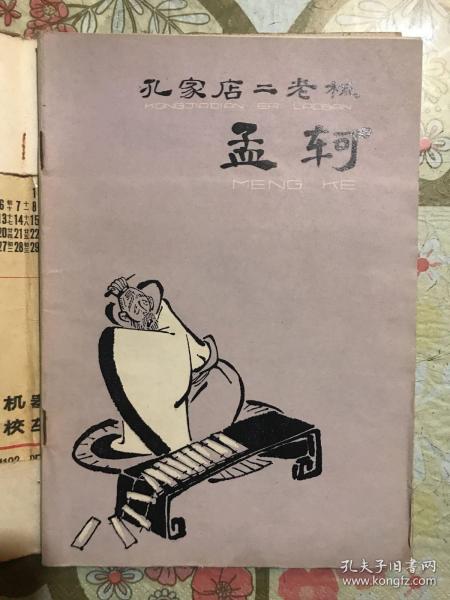 孔家店二老板
KONGJIADIAN ER LAOBAN
孟轲
MENG KE
6 7 8
13 14 15
20 21 22
27 28 29
机
校
孔夫子旧书网
www.kongfz.com